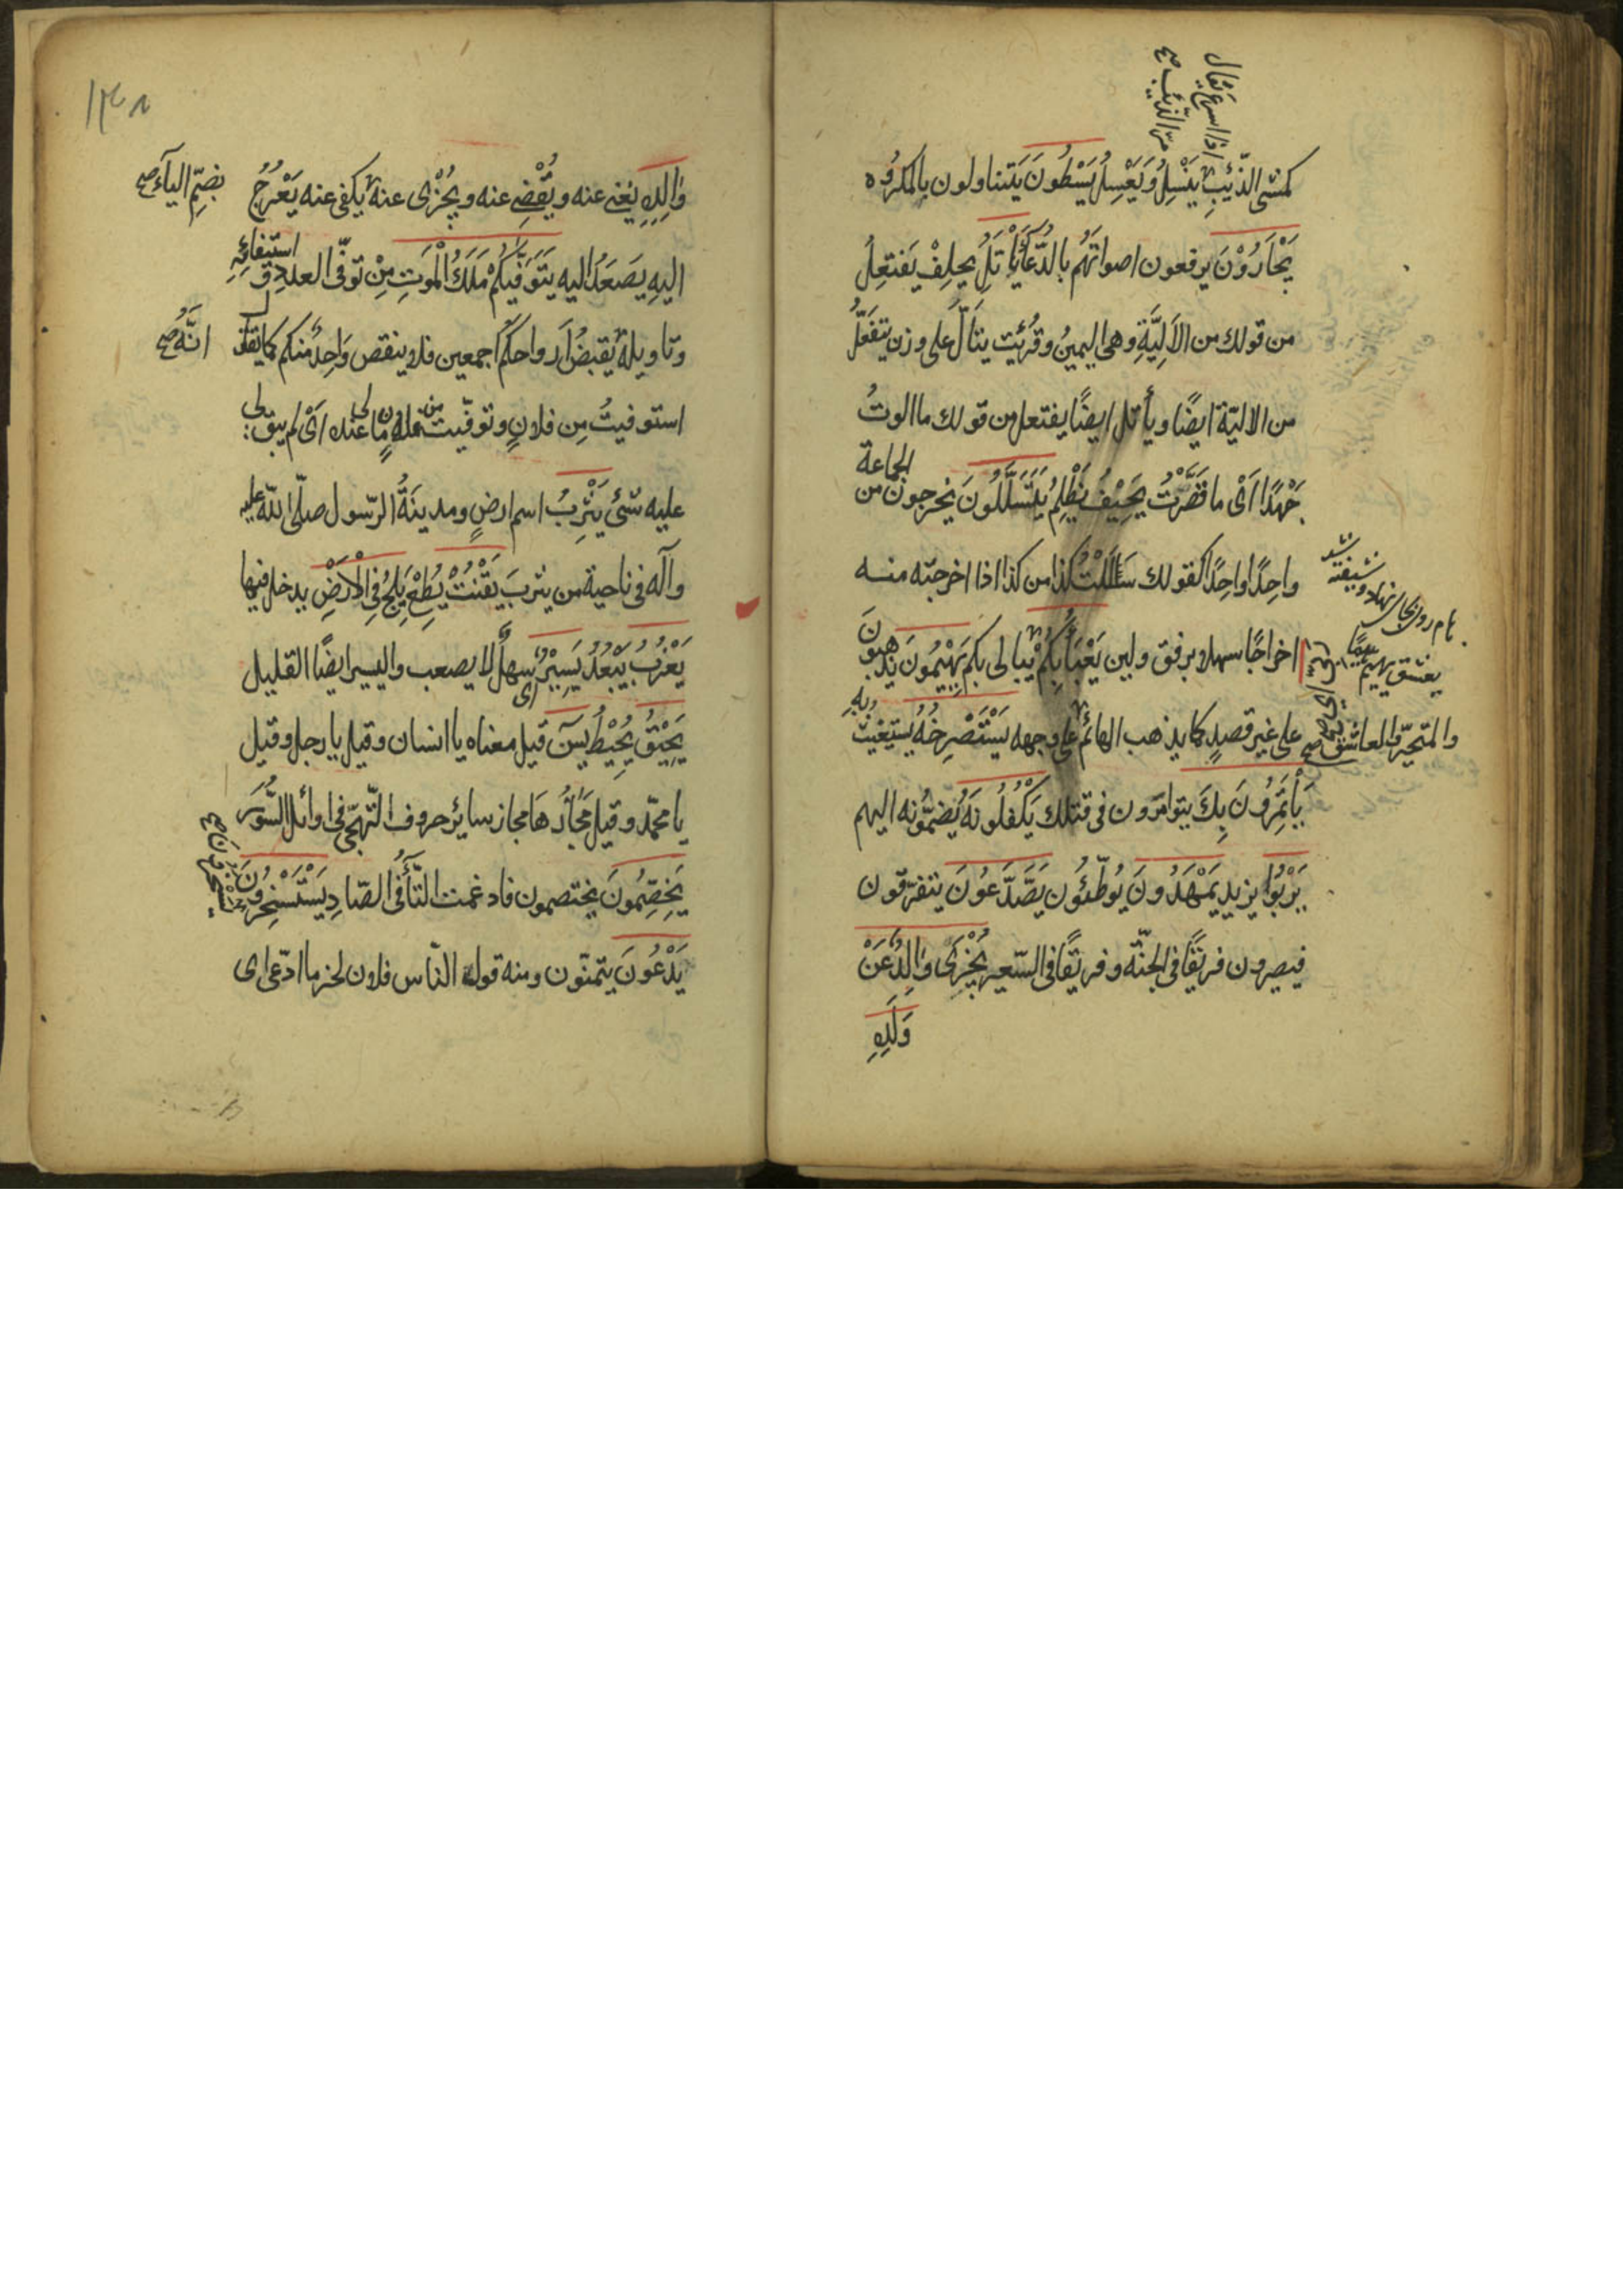 اذا اسرع يقال
مرّ الذّئب صح
كمشى الذّئبِ يَنْسِلُ وَيَعْسِلُ يَسْطُونَ يَتناولون بالمكرُوه
يَجْاَرُوْنَ يرفعون اصواتَهُم بالدُّعَآءِ يَأْتَلِ يحلِفْ يَفتعِلُ
من قولك من الاَلِيَّةِ وهى اليمينُ وقُرِئت يتَأَلَّ على وزن يتفَعَّلُ
من الاليّة ايضًا ويأتل ايضًا يفتعل من قولك ما الوتُ
جَهْدًا اَىْ ما قَصَّرْتُ يَحِيْفُ يَظْلِمُ يَتَسَلَّلُونَ يَخرجونَ من الجماعة
واحِدًا واحِدًا كقولك سَلَلْتُ كذا من كذا اذا اخرجتَه منه
اخراجًا سهلا برفق ولين يَعْبَأُ بِكُمْ يبالى بكم يَهِيْمُونَ يذهبونَ
على غير قصدٍ كما يذهب الهائمُ على وجهه يَسْتَصْرِخُهُ يستغيث بهِ
يَأْتَمِرُونَ بِكَ يتوامرون فى قتلك يَكْفُلُونَهُ يَضمُّونه اليهم
يَرْبُوْا يزيد يَمْهَدُونَ يُوطّئؤُن يَصَّدَّعُونَ يتفرّقون
فيصيرون فريقًا فى الجنّة وفريقًا فى السّعير يَجْزِىْ وَالِدٌ عَنْ
وَلَدِهِ
والمتحيّر والعاشق
١٣٨
وَالِدِهِ يُغنى عنه ويُقْضِى عنه ويُجْزِى عنه يكفى عنه يَعْرُجُ
بضمِّ اليآء صح
اليهِ يَصعَدُ اليه يَتَوَفَّيكُمْ مَلَكُ الْمَوْتِ مِنْ توفّى العددِ و استيفائِهِ
وتاويلهُ يَقبضُ اَرواحكم اجمعين فلا ينقص وَاحِدٌ منكم كما يقال
انّه صح
استوفيتُ مِن فلانٍ وتوفّيت من فلانٍ مالى عنده اَىْ لم يبق لى
عليه شئ يَثْرِبُ اسم ارضٍ ومدينَةُ الرّسول صلّى اللّه عليه
وآله فى ناحية من يثربَ يَقْنُتْ يُطِعْ يَلِجُ فِى الْاَرْضِ يدخل فيها
يَعْزُبُ يَبْعُدُ يَسِيْرٌ اى سهلٌ لا يصعب واليسير ايضًا القليل
يَحِيْقُ يُحِيْطُ يسٓ قيل معناه يا انسان وقيل يا رجل وقيل
يا محمّد وقيل مَجَازُهَا مجاز سائر حروف التّهجّى فى اوائل السُّوَرِ
يَخِصِّمُونَ يختصمون فادغمت التّآءُ فى الصّادِ يَسْتَسْخِرُونَ
يَدْعُونَ يتمنّون ومنه قول النّاس فلان لخير ما ادّعى اى